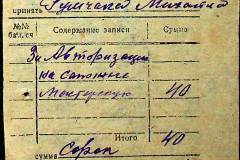 принять Гумчакое Михайло
№№ бал. сч Содержание записи Сумма
За Авторизацию
на сапожные
Мастерскую 40
Итого 40
сумма Сорок